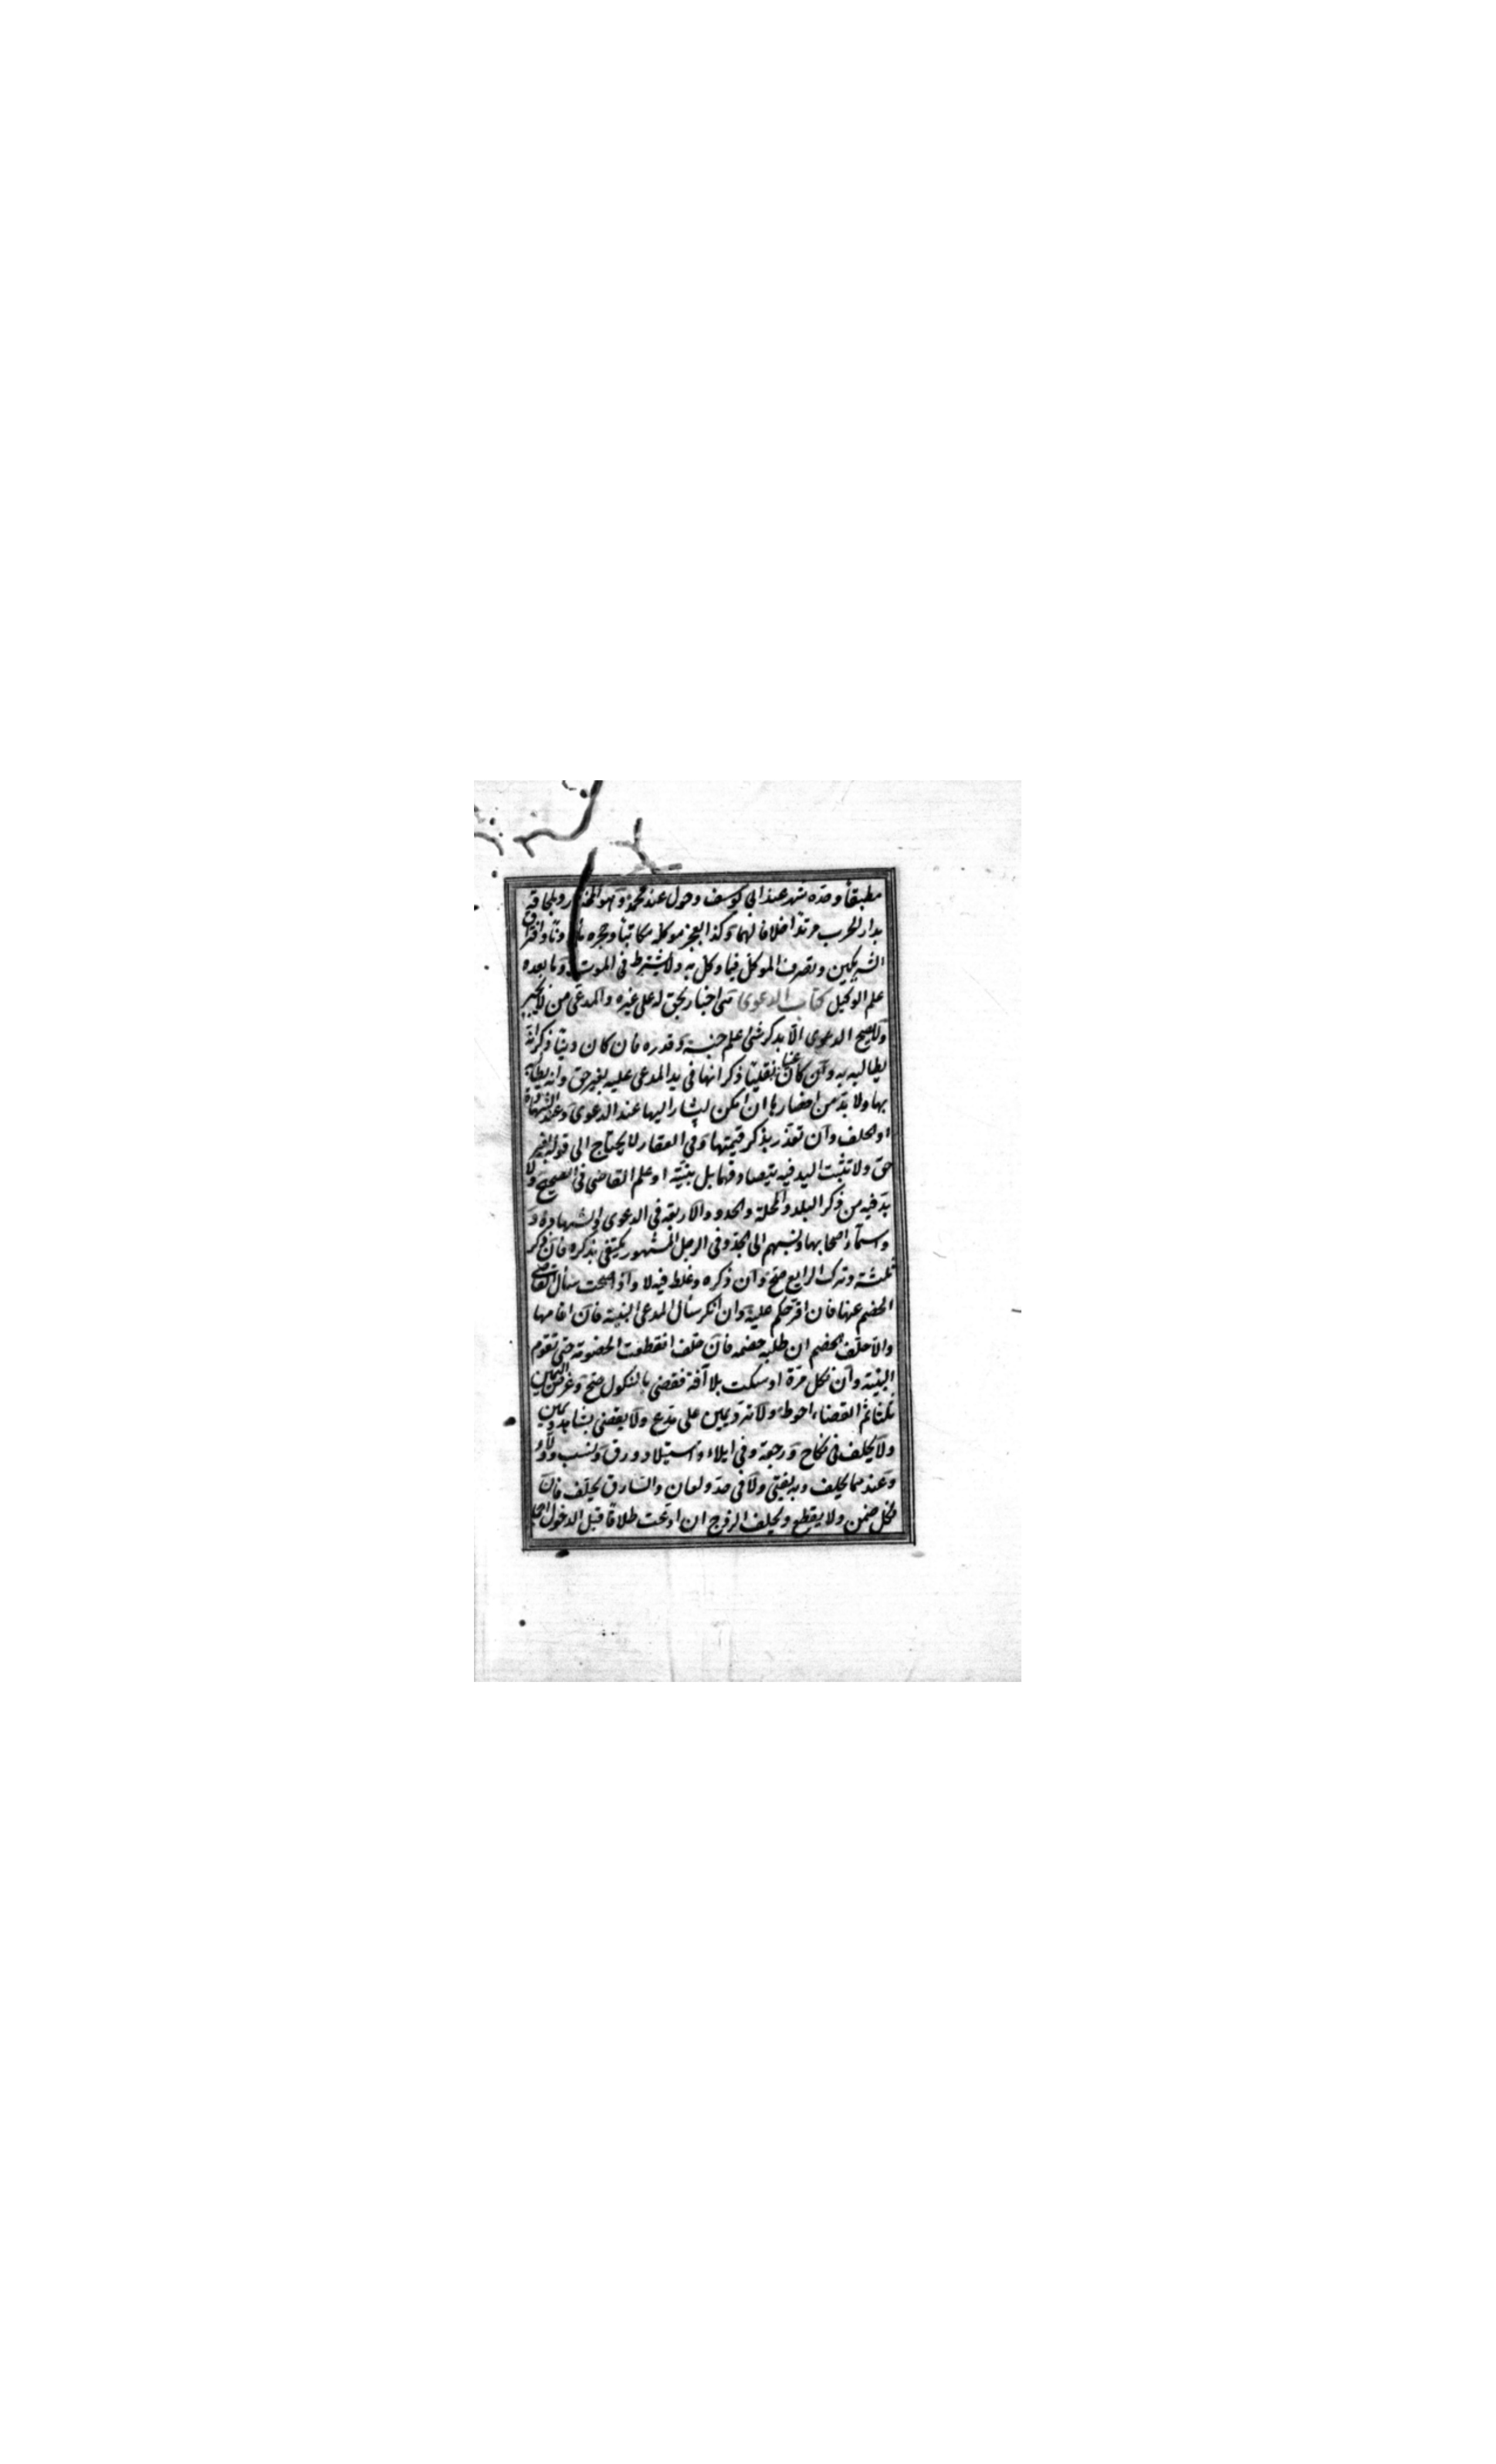 مطبقا وحده شهر عند ابي يوسف وحول عند محمد وهو المختار وبلحاقه
بدار الحرب مرتدا خلافا لهما وكذا بعجز موكله مكاتبا وحجره مأذونا وافتراق
الشريكين وتصرف الموكل فيما وكل به ولا يشترط في الموت وما بعده
علم الوكيل كتاب الدعوى هي اخبار بحق له على غيره والمدعى من لا يجبر
ولا يصح الدعوى الا بذكر شئ علم جنسه وقدره فان كان دينا ذكر انه
يطالبه به وان كان عينا نقليا ذكر انها في يد المدعى عليه بغير حق وانه يطالبه
بها ولا بد من احضارها ان امكن ليشار اليها عند الدعوى وعند الشهادة
او الحلف وان تعذر يذكر قيمتها وفي العقار لا يحتاج الى قوله بغير
حق ولا تثبت اليد فيه بتصادقهما بل ببينة او علم القاضي في الصحيح ولا
بد فيه من ذكر البلد والمحلة والحدود الاربعة في الدعوى والشهادة و
واسماء اصحابها ونسبهم الى الجد وفي الرجل المشهور يكتفى بذكره فان ذكر
ثلثة وترك الرابع صح وان ذكره وغلط فيه لا واذا صحت سأل القاضي
الخصم عنها فان اقر حكم عليه وان انكر سأل المدعى البينة فان اقامها
والا حلف الخصم ان طلبه خصمه فان حلف انقطعت الخصومة حتى تقوم
البينة وان نكل مرة او سكت بلا آفة فقضى بالنكول صح وعرض اليمين
ثلثا ثم القضاء احوط ولا ترد يمين على مدع ولا يقضى بشاهد ويمين
ولا يحلف في نكاح ورجعة وفي ايلاء واستيلاد ورق ونسب وولاء
وعندهما يحلف وبه يفتى ولا في حد ولعان والسارق يحلف فان
نكل ضمن ولا يقطع ويحلف الزوج ان ادعت طلاقا قبل الدخول